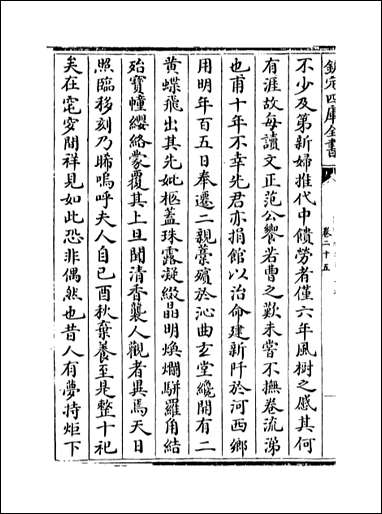 欽定四庫全書
卷二十五
不少及第新婦推代中饋勞者僅六年風樹之感其何
有涯故每讀文正范公饗若曹之歎未嘗不撫卷流涕
也甫十年不幸先君亦捐館以治命建新阡於河西鄉
用明年百五日奉遷二親藁殯於沁曲玄堂纔開有二
黃蝶飛出其先妣柩蓋珠露凝綴晶明煥爛駢羅角結
殆寶幢纓絡蒙覆其上且聞清香襲人觀者異焉天日
照臨移刻乃晞嗚呼夫人自己酉秋棄養至是整十祀
矣在窀穸間祥見如此恐非偶然也昔人有夢持炬下